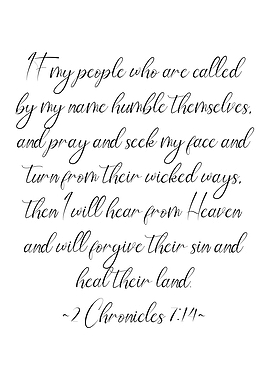 If my people who are called
by my name humble themselves,
and pray and seek my face and
turn from their wicked ways,
Then I will hear from Heaven
and will forgive their sin and
heal their land.
~2 Chronicles 7:14~